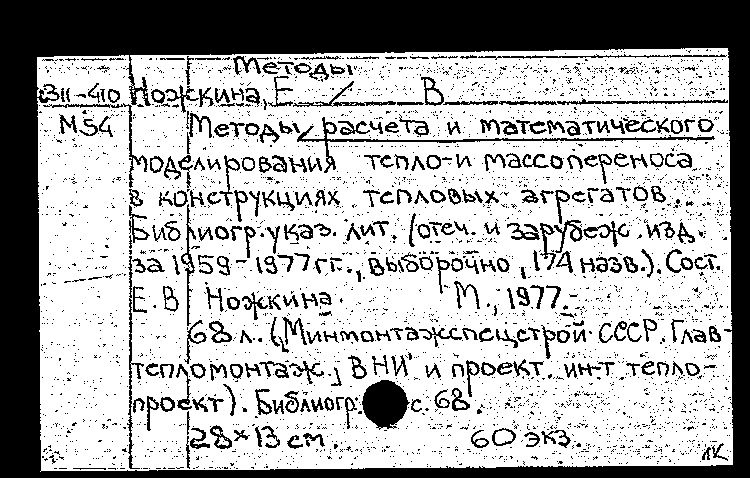 Методы
В11-410 Ножкина, Е / В
М54 Методы расчета и математического
моделирования тепло-и массопереноса
в конструкциях тепловых агрегатов.
Библиогр. указ. лит. (отеч. и зарубеж. изд.
за 1959-1977гг., выборочно, 174 назв.). Сост.
Е.В Ножкина. М., 1977.-
68 л. (Минмонтажспецстрой СССР. Глав-
тепломонтаж., ВНИ и проект. ин-т тепло-
проект). Библиогр. с. 68.
28×13 см. 60 экз.